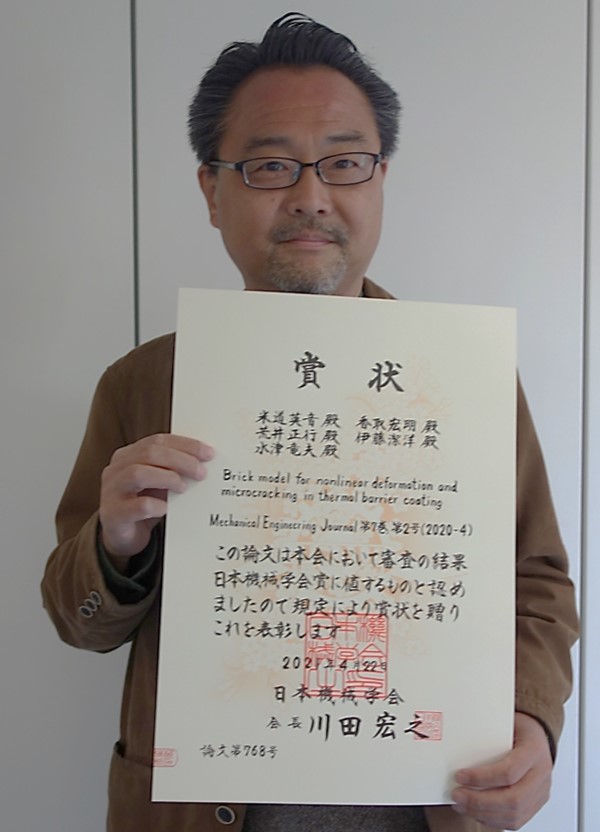 賞状
米道英音殿 香取宏明殿
荒井正行殿 伊藤潔洋殿
水津竜夫殿
Brick model for nonlinear deformation and
microcracking in thermal barrier coating
Mechanical Engineering Journal 第7巻 第2号(2020-4)
この論文は本会において審査の結果
日本機械学会賞に値するものと認め
ましたので規定により賞状を贈り
これを表彰します
2021年4月22日
日本機械学会
会長 川田宏之
論文第768号